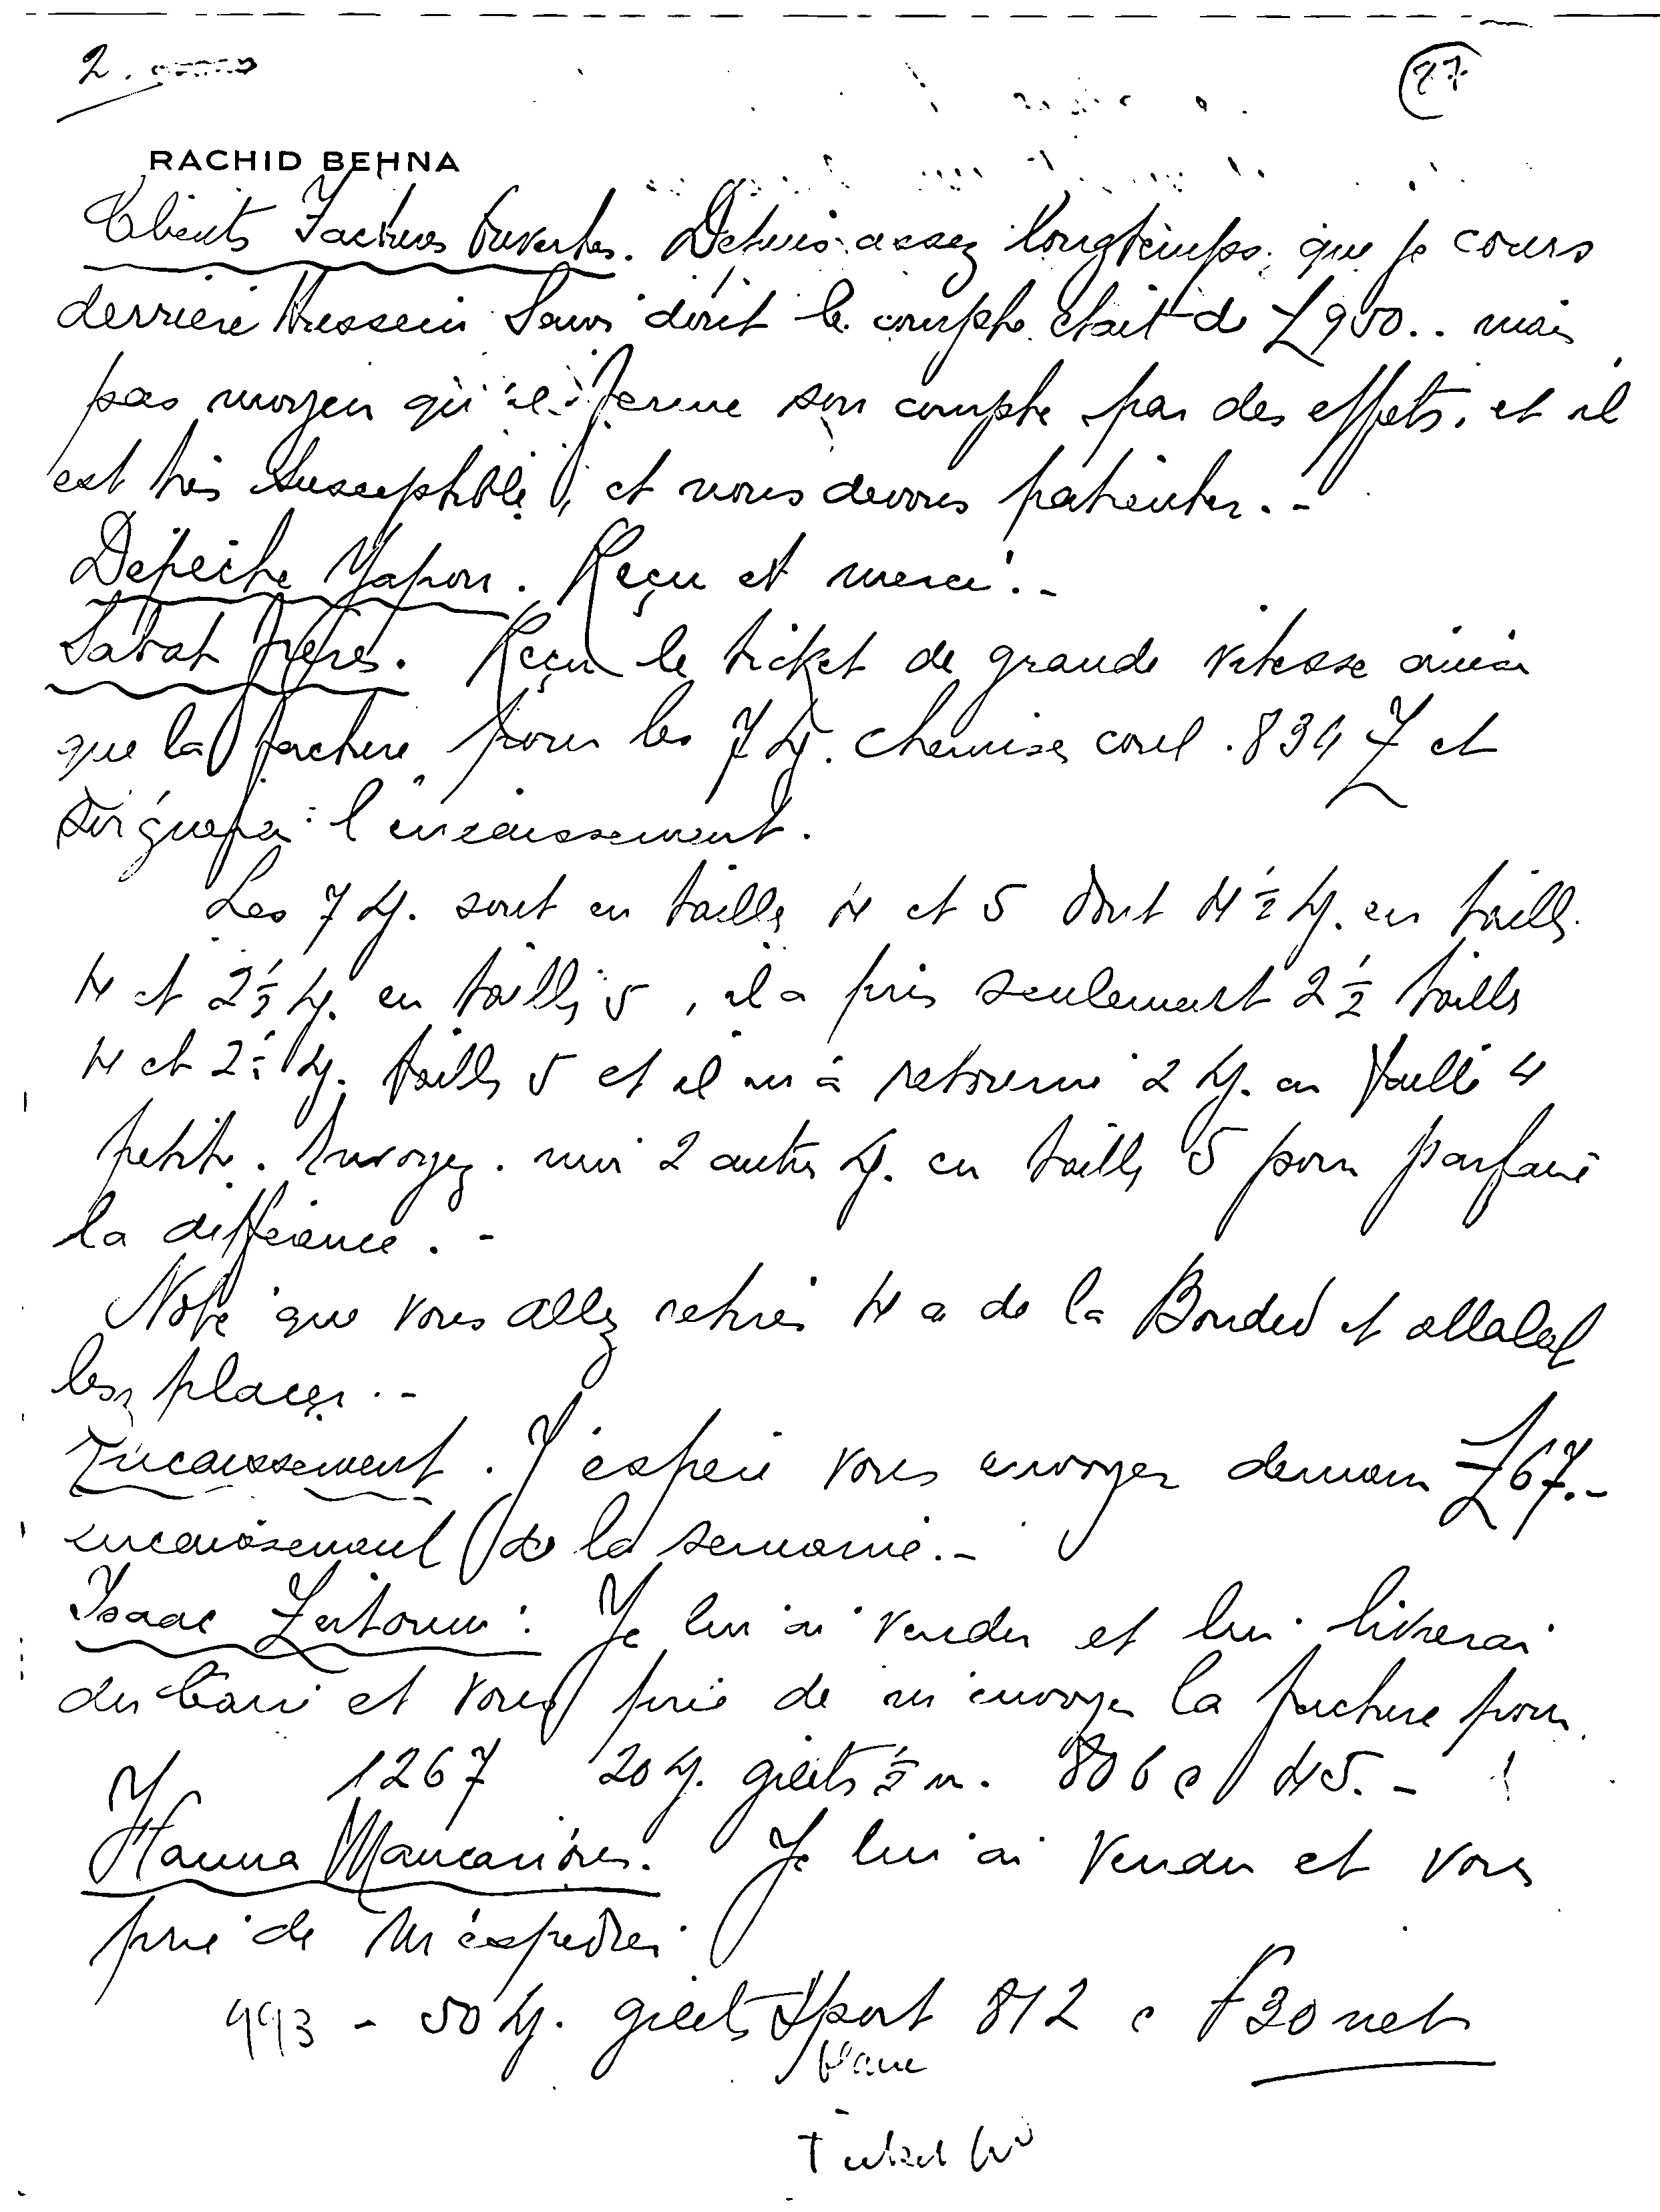 2.
27
RACHID BEHNA
Clients Factures Ouvertes. Depuis assez longtemps que je cours
derrière Hussein dont le compte était de £ 900.. mais
pas moyen qu'il ferme son compte par des effets, et il
est très susceptible, et nous devons patienter. -
Dépêche Japon. Reçu et merci. -
Sabat Frères. Reçu le ticket de grande vitesse ainsi
que la facture pour les 7 chemises 834 et
l'encaissement.
Les 7 sont en taille 4 et 5 dont 4 ½ en taille
4 et 2 ½ en taille 5, il a pris seulement 2 ½ taille
4 et 2 ½ taille 5 et il m'a retourné 2 en taille 4
petite. Envoyez-moi 2 autres en taille 5 pour parfaire
la différence. -
Note que vous allez retirer 4 de la Bonded et
les placer. -
Encaissement. J'espère vous envoyer demain £ 67. -
encaissement de la semaine. -
Isaac Zeitouni: Je lui ai vendu et lui livrerai
du et vous prie de m'envoyer la facture pour
1267 20 gilets ½ m. 806 45. -
Hanna Je lui ai vendu et vous
prie de m'expédier
993 - 50 gilets Sport 812 30 net